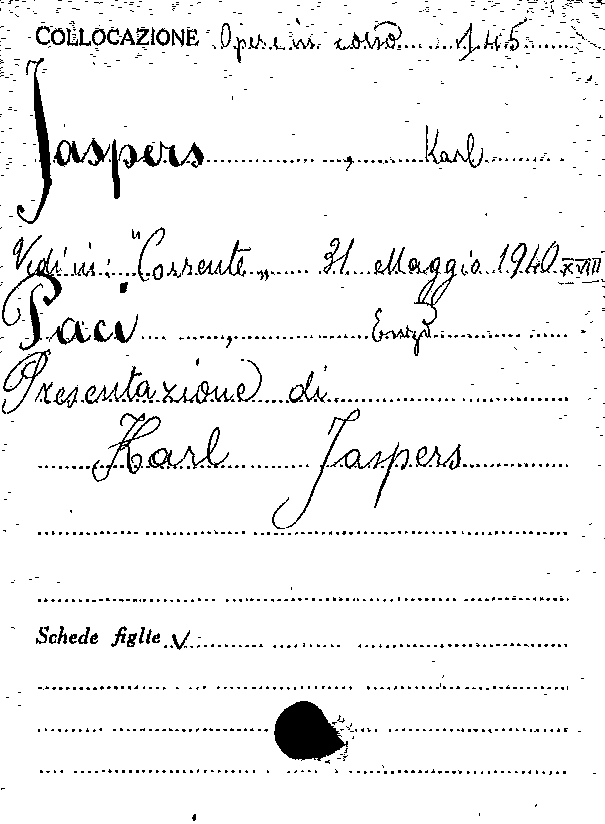 COLLOCAZIONE Opere in corso 145
Jaspers , Karl
Vedi in: "Corrente„ 31 Maggio 1940 XVIII
Paci , Enzo
Presentazione di
Karl Jaspers
Schede figlie V